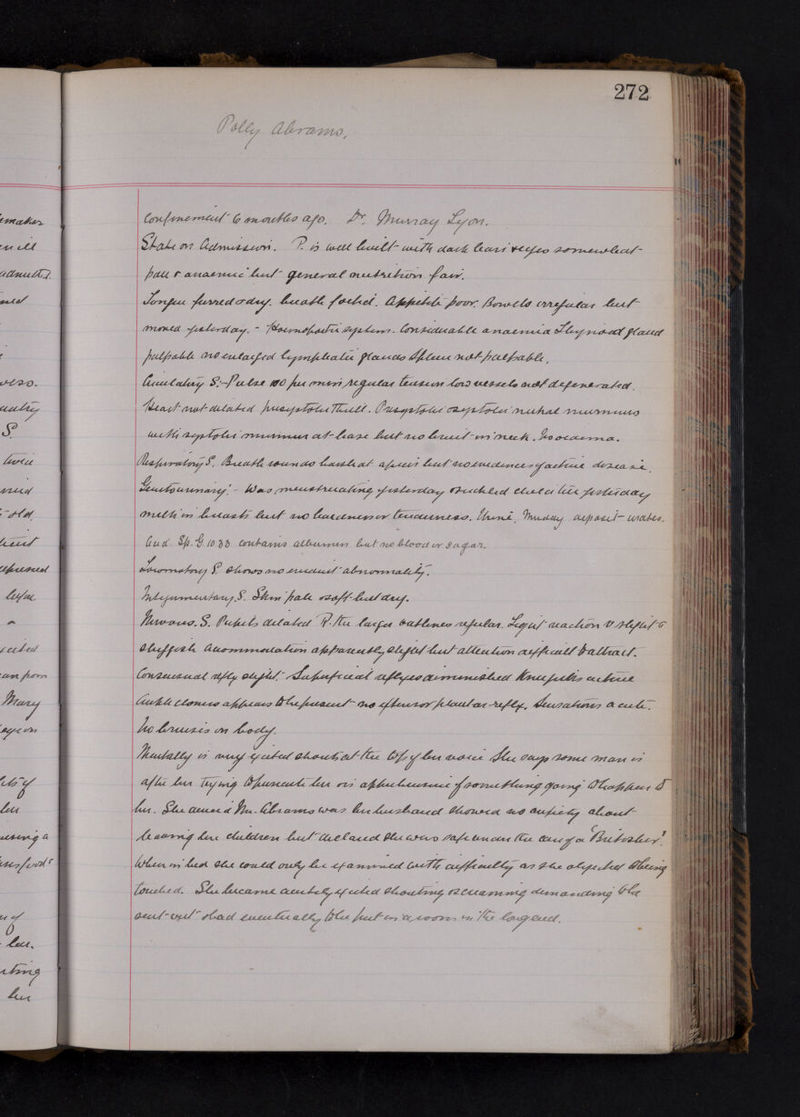 272
Polly Abrams.
Confinement 6 months ago. Dr. Murray Lyon.
State on Admission. P. is well built with dark hair & eyes somewhat
pale & anaemic but general nutrition fair.
Tongue furred & dry. breath foetid. Appetite poor. Bowels irregular but
moved yesterday. - Haemopoietic system. Considerable anaemia Thyroid gland
palpable no enlarged lymphatic glands Spleen not palpable.
Circulatory S. - Pulse 110 per min regular tension low vessels not degenerated.
Heart not dilated presystolic Thrill. Presystolic & systolic mitral murmurs
with systolic murmur at base but no bruit in neck. No oedema.
Respiratory S. Breath sounds harsh at apices but no evidence of active disease.
Genitourinary: - Was menstruating yesterday & suckled child till yesterday
milk in breasts but no hardness or tenderness. Urine, muddy deposit - urates.
Acid Sp. G. 1033 contains albumen but no blood or sugar.
Locomotory S. shows no evident abnormality.
Integumentary S. Skin pale & soft but dry.
Nervous. S. Pupils dilated R. the larger outlines regular. Light reaction v slight &
sluggish accommodation apparently slight but attention difficult to attract.
Consensual reflex slight. Superficial reflexes diminished Knee jerks active
Ankle clonus appears to be present no extensor plantar reflex. Sensations acute.
No bruises on body.
Mentally is very excited shouts at the top of her voice She says some man is
after her trying to persecute her is apprehensive of something going to happen to
her. She denied Mr. Abrams was her husband showed no anxiety about
leaving her children but declared she was safe under the care of a "Britisher".
When in bed she could only be examined with difficulty as she objected to being
touched. She became acutely excited shouting & screaming demanding to be
sent out & had eventually to be put in a room in the long end.